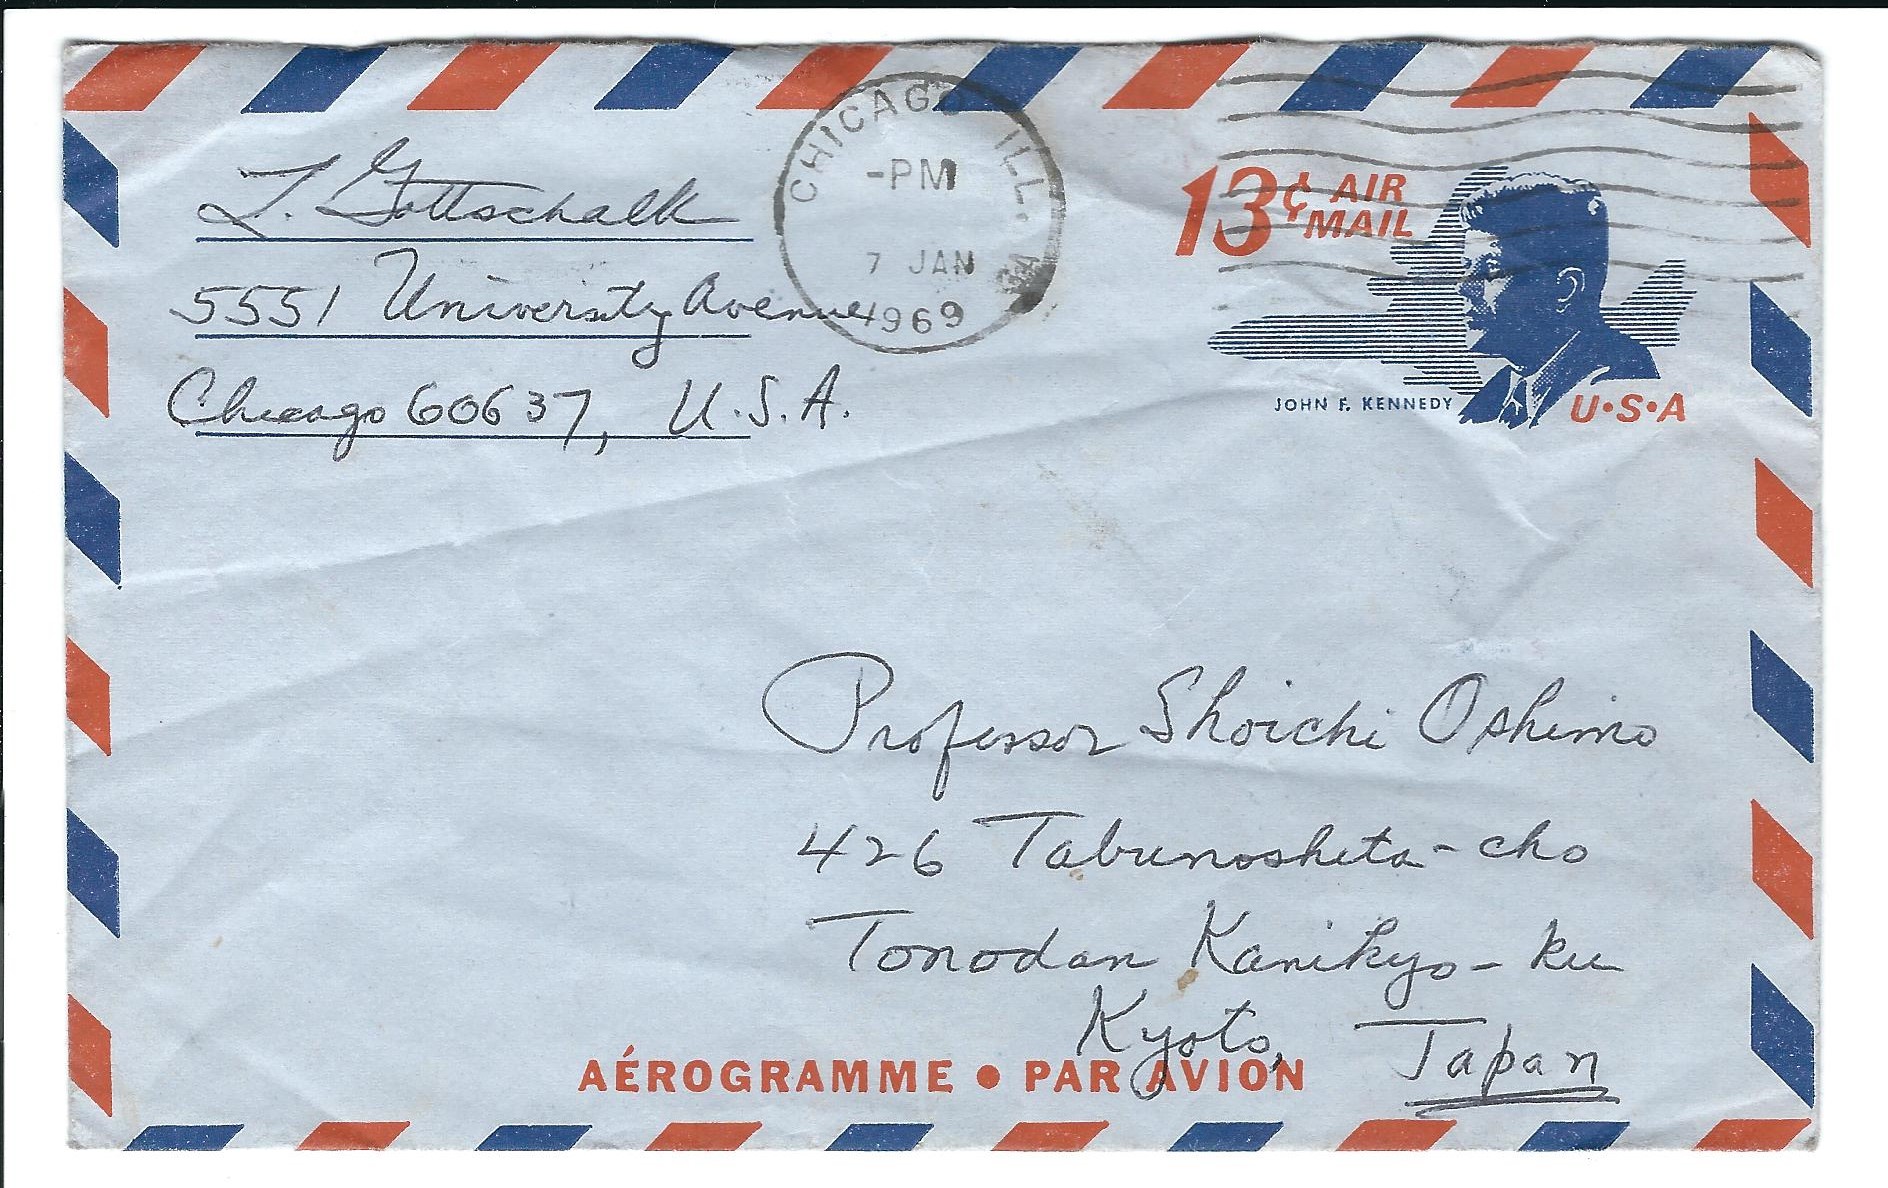 L. Gottschalk
5551 University Avenue
Chicago 60637, U.S.A.
CHICAGO ILL.
-PM
7 JAN
1969
13¢ AIR
MAIL
JOHN F. KENNEDY
U•S•A
Professor Shoichi Oshimo
426 Tabunoshita-cho
Tonodan Kamikyo-ku
Kyoto, Japan
AÉROGRAMME • PAR AVION